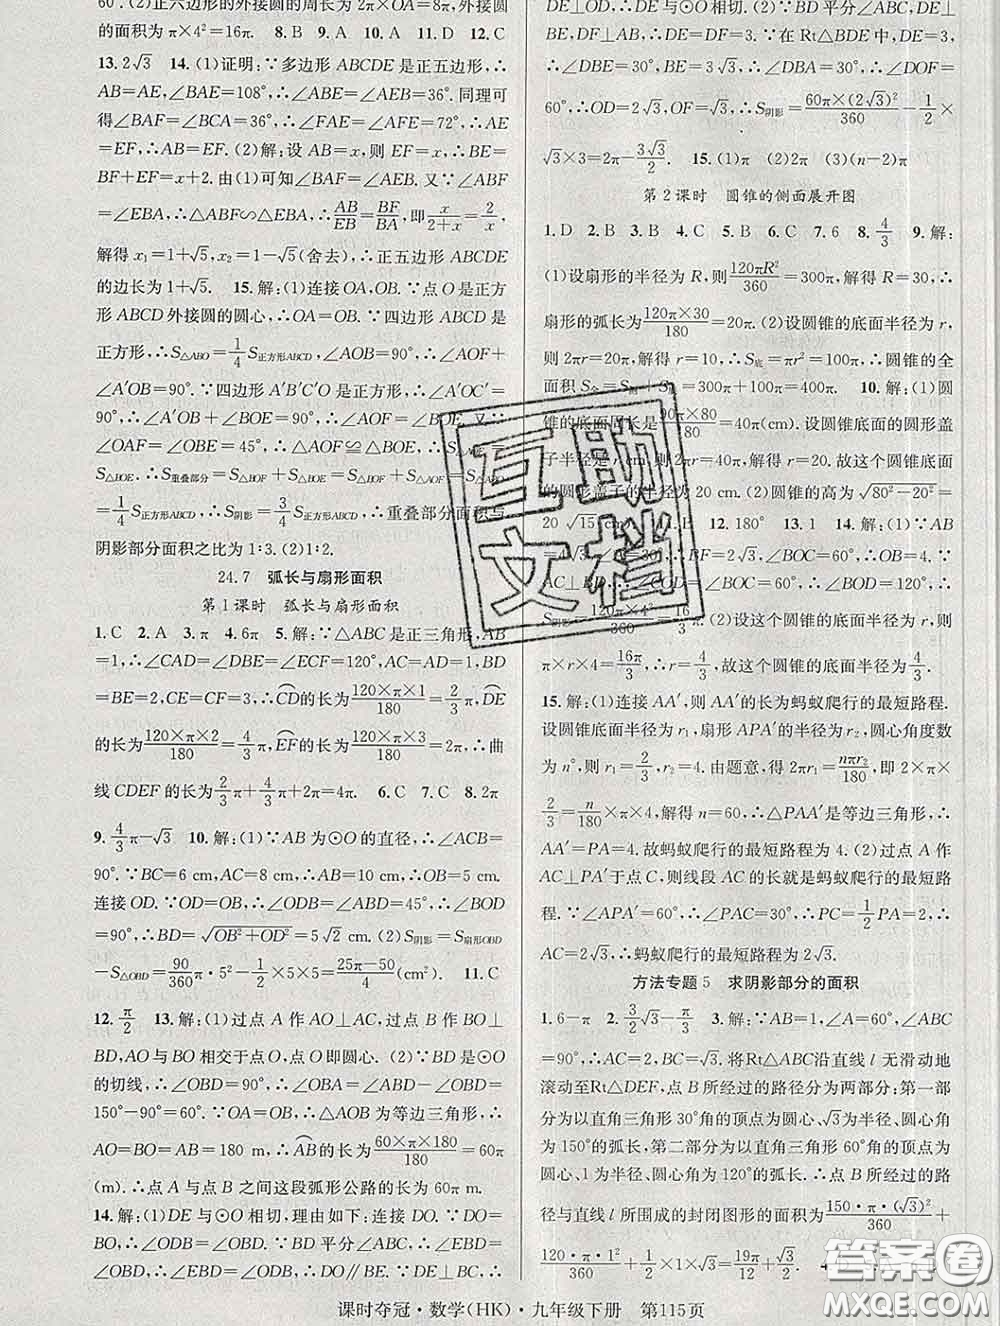 60°.(2)正六边形的外接圆的周长为2π×OA=8π,外接圆
的面积为π×4²=16π. 8.B 9.A 10.A 11.D 12.C
13.2√3 14.(1)证明:∵多边形ABCDE是正五边形,∴
AB=AE,∠BAE=108°,∴∠ABE=36°.同理可
得∠BAF=∠BCA=36°,∴∠FAE=∠AFE=72°,∴AE
=EF,∴AB=EF.(2)解:设AB=x,则EF=x,∴BE=
BF+EF=x+2.由(1)可知∠BAF=∠BEA.又∵∠ABF
=∠EBA,∴△ABF∽△EBA,∴AB/EB=BF/BA,即x/(2+x)=2/x,
解得x₁=1+√5,x₂=1-√5(舍去).∴正五边形ABCDE
的边长为1+√5. 15.解:(1)连接OA,OB.∵点O是正方
形ABCD外接圆的圆心,∴OA=OB.∵四边形ABCD是
正方形,∴S△ABO=1/4 S正方形ABCD,∠AOB=90°,∴∠AOF+
∠A′OB=90°.∵四边形A′B′C′O是正方形,∴∠A′OC′=
90°,∴∠A′OB+∠BOE=90°,∴∠AOF=∠BOE.又∵
∠OAF=∠OBE=45°,∴△AOF≌△BOE,∴S△AOF=
S△BOE,∴S重叠部分=S△BOF+S△BOE=S△BOF+S△AOF=S△ABO
=1/4 S正方形ABCD,∴S阴影=3/4 S正方形ABCD,∴重叠部分面积与
阴影部分面积之比为1∶3.(2)1∶2.
24.7 弧长与扇形面积
第1课时 弧长与扇形面积
1.C 2.A 3.π 4.6π 5.解:∵△ABC是正三角形,AB
=1,∴∠CAD=∠DBE=∠ECF=120°,AC=AD=1,BD
=BE=2,CE=CF=3,∴CD的长为(120×π×1)/180=2/3π,DE
的长为(120×π×2)/180=4/3π,EF的长为(120×π×3)/180=2π,∴曲
线CDEF的长为2/3π+4/3π+2π=4π. 6.C 7.C 8.2π
9.4/3π-√3 10.解:(1)∵AB为⊙O的直径,∴∠ACB=
90°.∵BC=6 cm,AC=8 cm,∴AB=10 cm,∴OB=5 cm.
连接OD.∵OD=OB,∴∠ODB=∠ABD=45°,∴∠BOD
=90°,∴BD=√(OB²+OD²)=5√2 cm.(2)S阴影=S扇形OBD
-S△OBD=90/360π·5²-1/2×5×5=(25π-50)/4(cm²). 11.C
12.π/2 13.解:(1)过点A作AO⊥AC,过点B作BO⊥
BD,AO与BO相交于点O,点O即圆心.(2)∵BD是⊙O
的切线,∴∠OBD=90°,∴∠OBA=∠ABD-∠OBD=
150°-90°=60°.∵OA=OB,∴△AOB为等边三角形,∴
AO=BO=AB=180 m,∴AB的长为(60×π×180)/180=60π
(m).∴点A与点B之间这段弧形公路的长为60π m.
14.解:(1)DE与⊙O相切,理由如下:连接DO.∵DO=
BO,∴∠ODB=∠OBD.∵BD平分∠ABC,∴∠EBD=
∠OBD,∴∠EBD=∠ODB,∴DO∥BE.∵DE⊥BC,∴
DE⊥OD,∴DE与⊙O相切.(2)∵BD平分∠ABC,DE⊥
BE,DF⊥AB,∴DE=DF=3.∵在Rt△BDE中,DE=3,
∴∠DBE=30°,BE=3√3,∴∠DBA=30°,∴∠DOF=
60°,∴OD=2√3,OF=√3,∴S阴影=60π×(2√3)²/360-1/2×
√3×3=2π-3√3/2. 15.(1)π (2)2π (3)(n-2)π
第2课时 圆锥的侧面展开图
1.D 2.B 3.B 4.C 5.B 6.C 7.6 8.4/3 9.解:
(1)设扇形的半径为R,则120πR²/360=300π,解得R=30,∴
扇形的弧长为(120π×30)/180=20π.(2)设圆锥的底面半径为r,
则2πr=20π,解得r=10,∴S底=πr²=100π,∴圆锥的全
面积S全=S侧+S底=300π+100π=400π. 10.解:(1)圆
锥的底面周长是(90π×80)/180=40π(cm).设圆锥底面的圆形盖
子半径是r cm,则2πr=40π,解得r=20.故这个圆锥底面
的圆形盖子的半径为20 cm.(2)圆锥的高为√(80²-20²)=
20√15(cm). 12.180° 13.1 14.解:(1)∵AB
∠BOC=60°,∴∠OBC=
S阴影=(120π×4²)/360=16/3π.
π×r×4=16π/3,解得r=4/3,故这个圆锥的底面半径为4/3.
15.解:(1)连接AA′,则AA′的长为蚂蚁爬行的最短路程.
设圆锥底面半径为r₁,扇形APA′的半径为r₂,圆心角度数
为n°,则r₁=2/3,r₂=4.由题意,得2πr₁=nπr₂/180,即2π×
2/3=n/180×π×4,解得n=60,∴△PAA′是等边三角形,∴
AA′=PA=4.故蚂蚁爬行的最短路程为4.(2)过点A作
AC⊥PA′于点C,则线段AC的长就是蚂蚁爬行的最短路
程.∵∠APA′=60°,∴∠PAC=30°,∴PC=1/2PA=2,∴
AC=2√3,∴蚂蚁爬行的最短路程为2√3.
方法专题5 求阴影部分的面积
1.6-π 2.3/2√3-π/3 3.解:∵AB=1,∠A=60°,∠ABC
=90°,∴AC=2,BC=√3.将Rt△ABC沿直线l无滑动地
滚动至Rt△DEF,点B所经过的路径分为两部分:第一部
分为以直角三角形30°角的顶点为圆心,√3为半径,圆心角
为150°的弧长,第二部分为以直角三角形60°角的顶点为
圆心、1为半径、圆心角为120°的弧长.∴点B所经过的路
径与直线l所围成的封闭图形的面积为150·π·(√3)²/360+
120·π·1²/360+1/2×1×√3=19π/12+√3/2.
课时夺冠·数学(HK)·九年级下册 第115页
互助
文档
答案圈